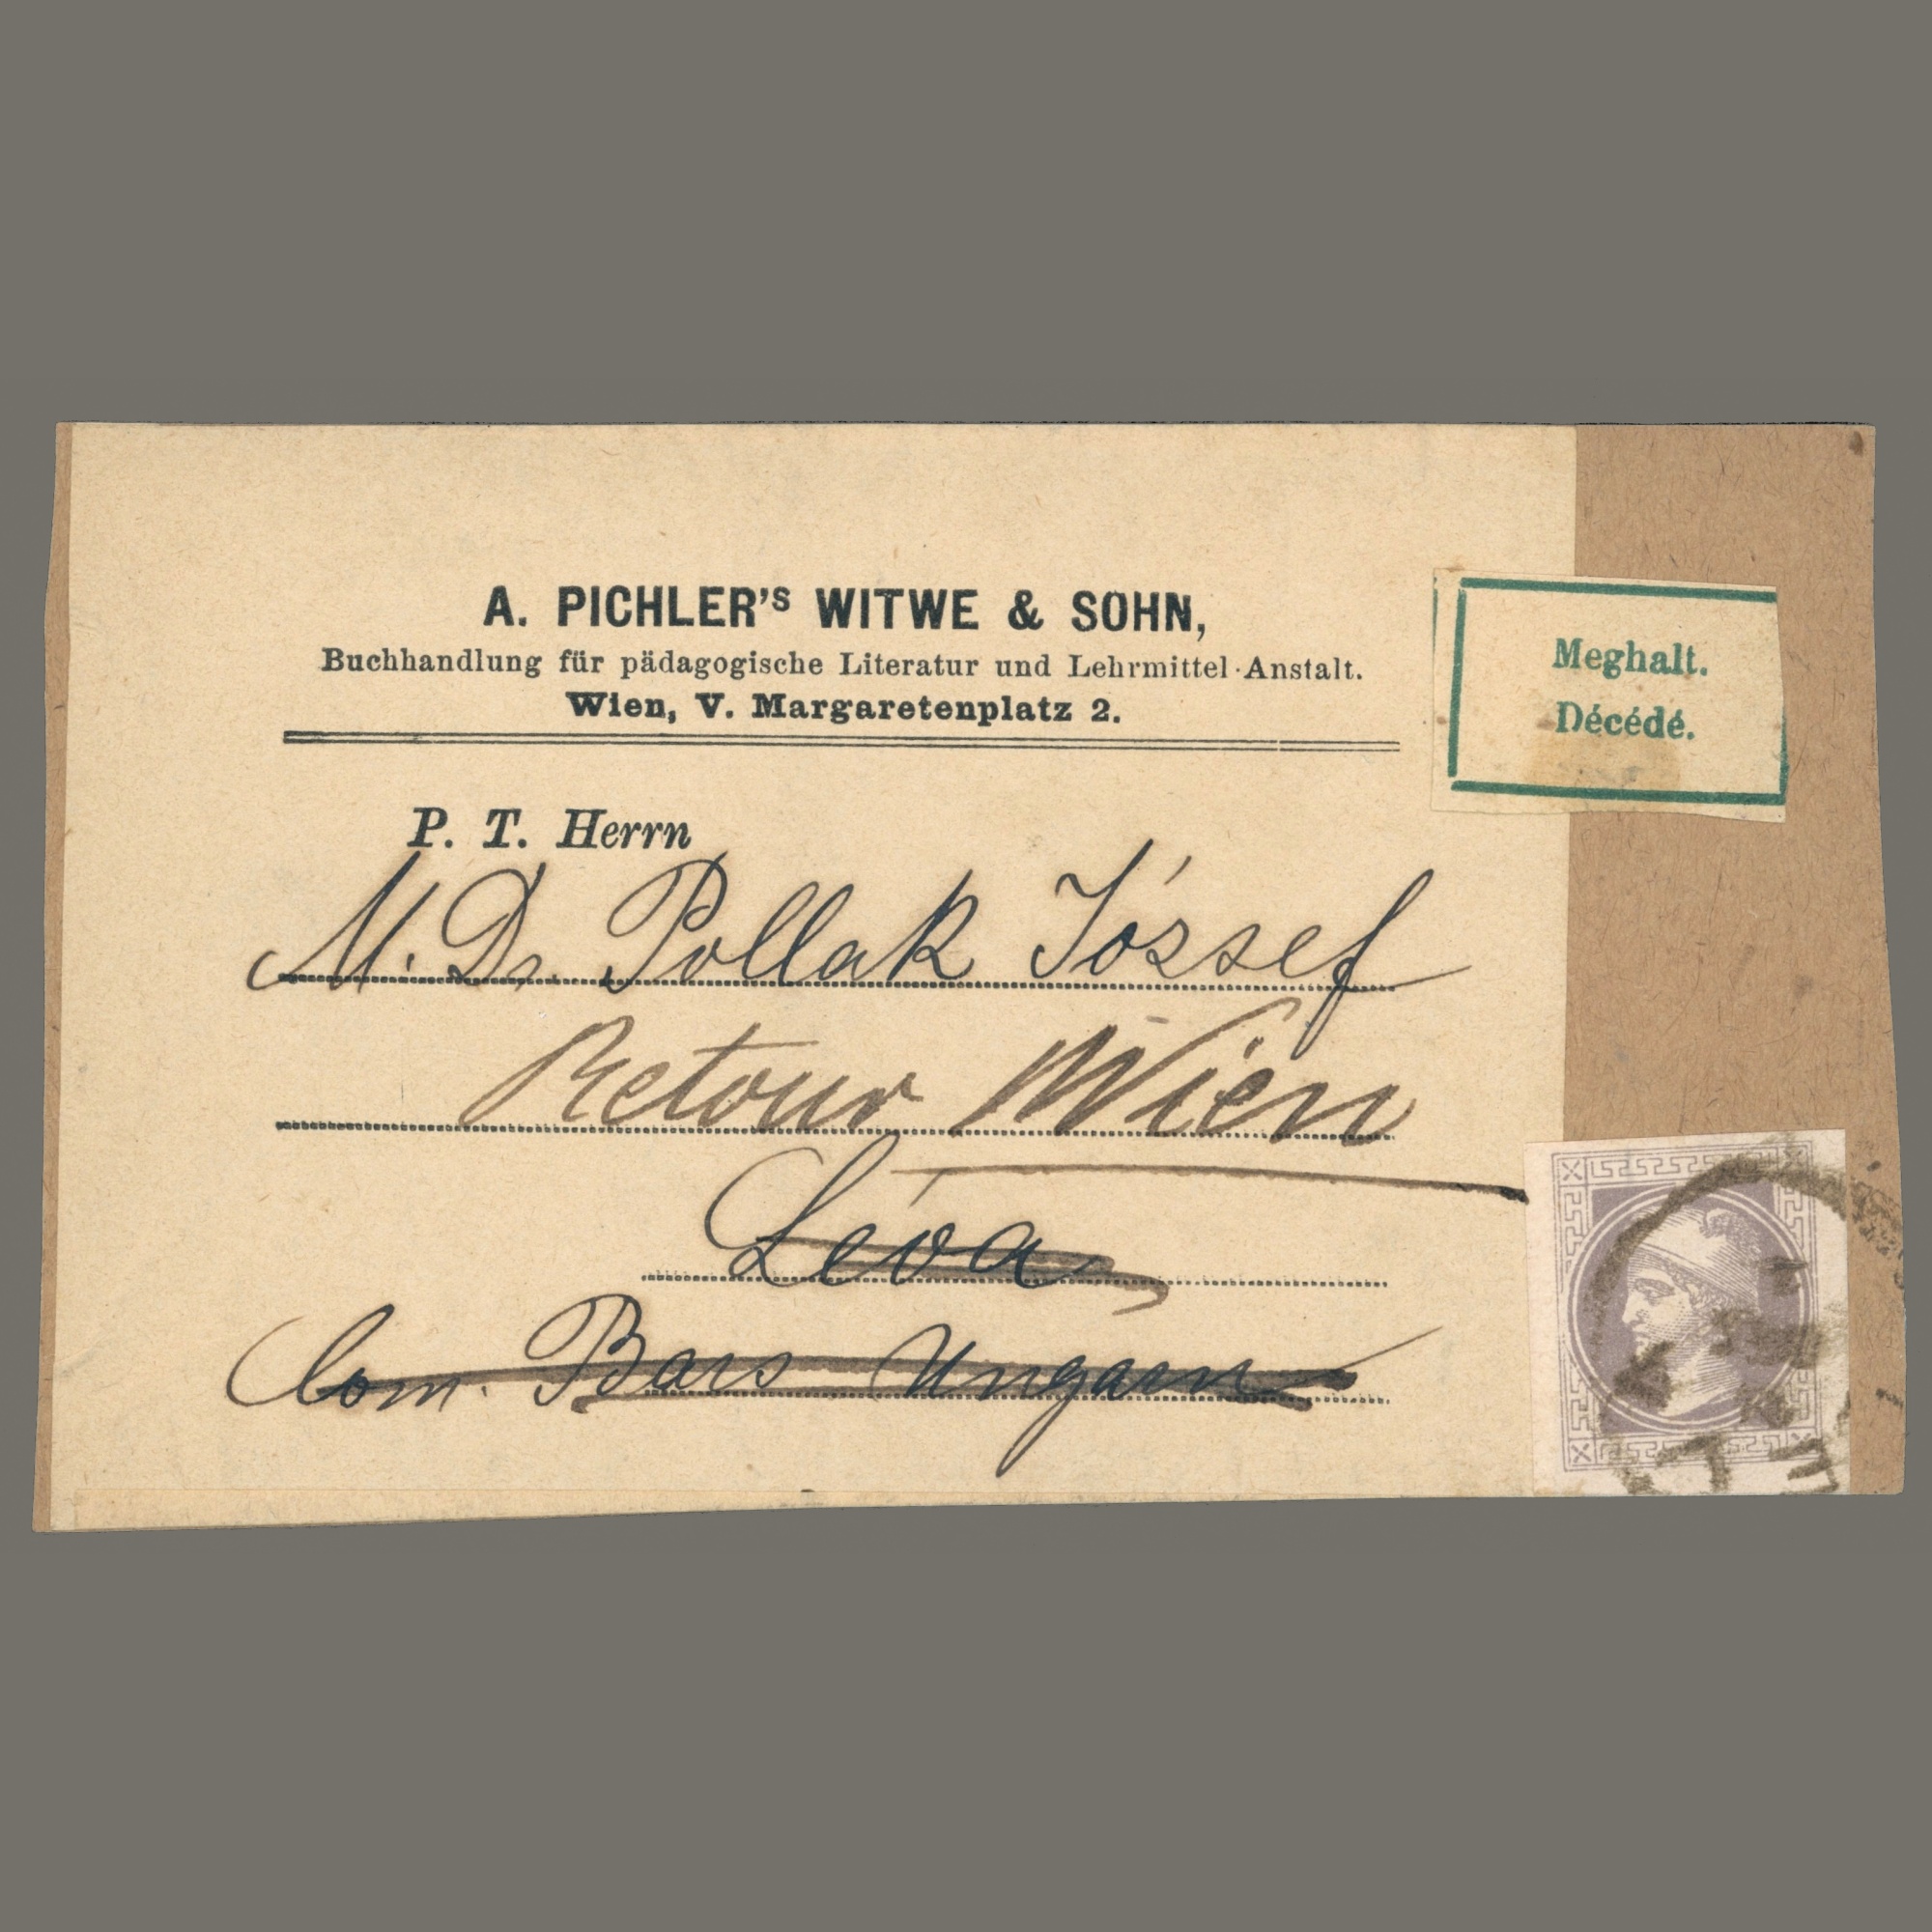 A. PICHLER'S WITWE & SOHN,
Buchhandlung für pädagogische Literatur und Lehrmittel-Anstalt.
Wien, V. Margaretenplatz 2.
Meghalt.
Décédé.
P. T. Herrn
M. Dr. Pollak József
Retour Wien
Léva
Com. Bars Ungarn